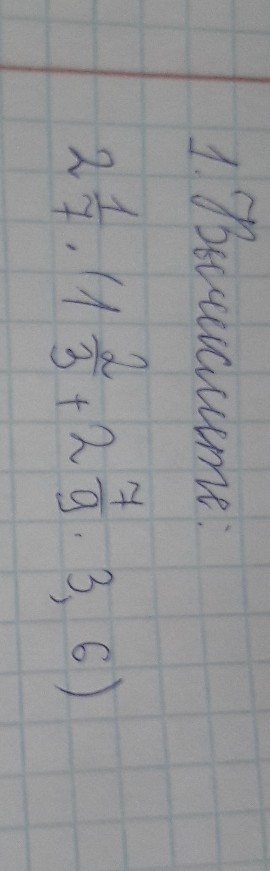 1. Вычислите:
2 1/7 · (1 2/3 + 2 7/9 · 3,6)